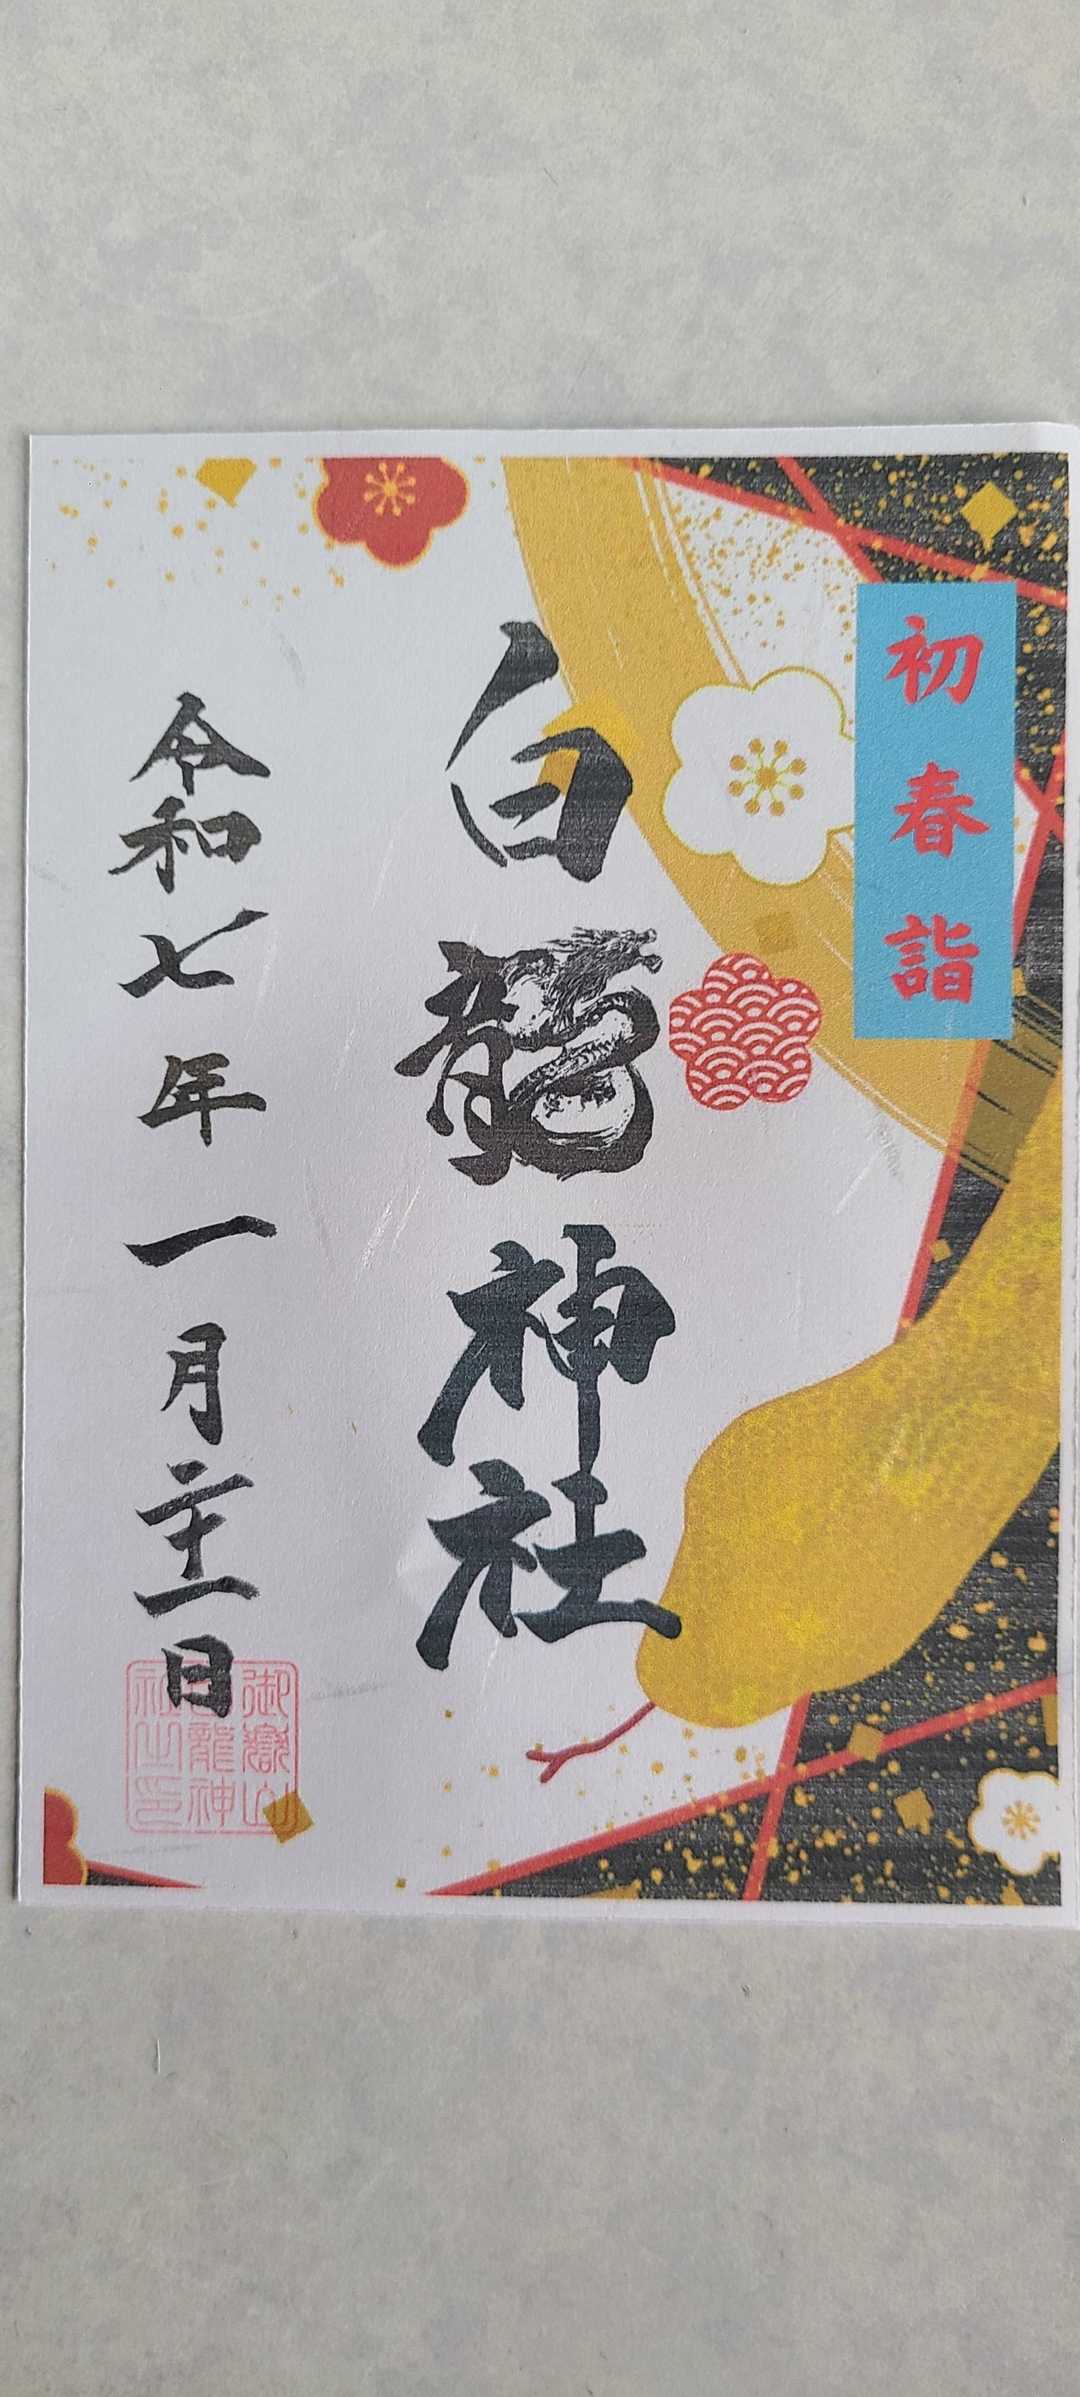 初春詣
白龍神社
令和七年一月二十一日
御嶽山
白龍神
社之印